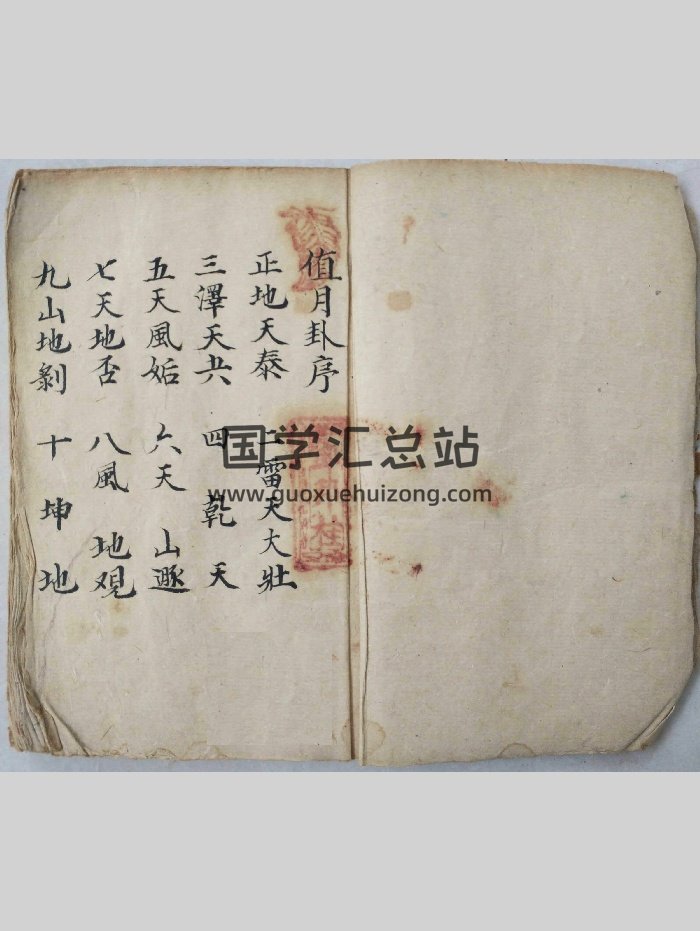 值月卦序
正地天泰 二雷天大壯
三澤天夬 四乾天
五天風姤 六天山遯
七天地否 八風地观
九山地剝 十坤地
国学汇总站
www.guoxuehuizong.com